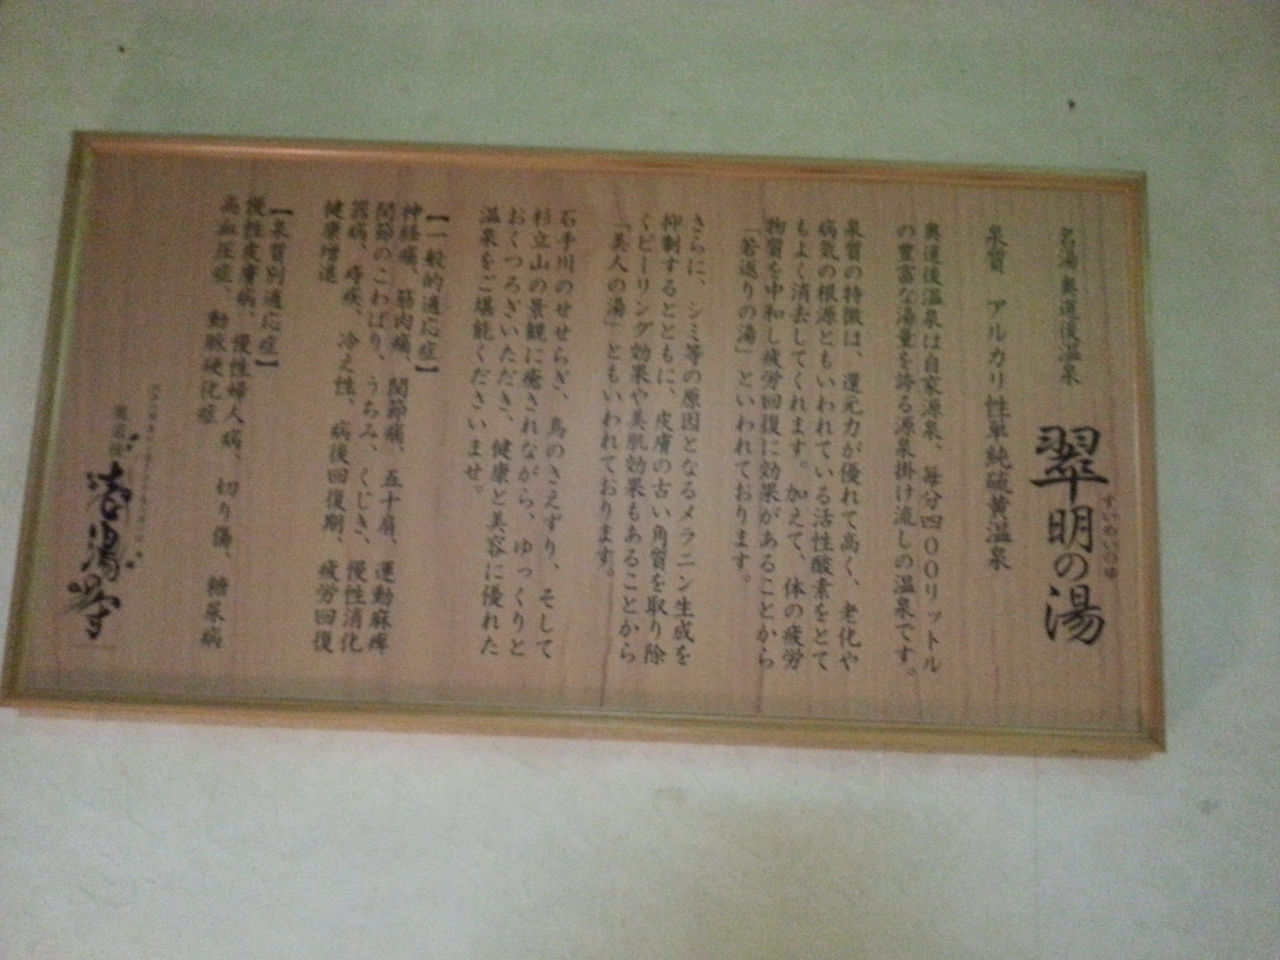 名湯 奥道後温泉
翠明の湯
すいめいのゆ
泉質 アルカリ性単純硫黄温泉
奥道後温泉は自家源泉、毎分四〇〇リットル
の豊富な湯量を誇る源泉掛け流しの温泉です。
泉質の特徴は、還元力が優れて高く、老化や
病気の根源ともいわれている活性酸素をとて
もよく消去してくれます。加えて、体の疲労
物質を中和し疲労回復に効果があることから
「若返りの湯」といわれております。
さらに、シミ等の原因となるメラニン生成を
抑制するとともに、皮膚の古い角質を取り除
くピーリング効果や美肌効果もあることから
「美人の湯」ともいわれております。
石手川のせせらぎ、鳥のさえずり、そして
杉立山の景観に癒されながら、ゆっくりと
おくつろぎいただき、健康と美容に優れた
温泉をご堪能くださいませ。
【一般的適応症】
神経痛、筋肉痛、関節痛、五十肩、運動麻痺
関節のこわばり、うちみ、くじき、慢性消化
器病、痔疾、冷え性、病後回復期、疲労回復
健康増進
【泉質別適応症】
慢性皮膚病、慢性婦人病、切り傷、糖尿病
高血圧症、動脈硬化症
奥道後